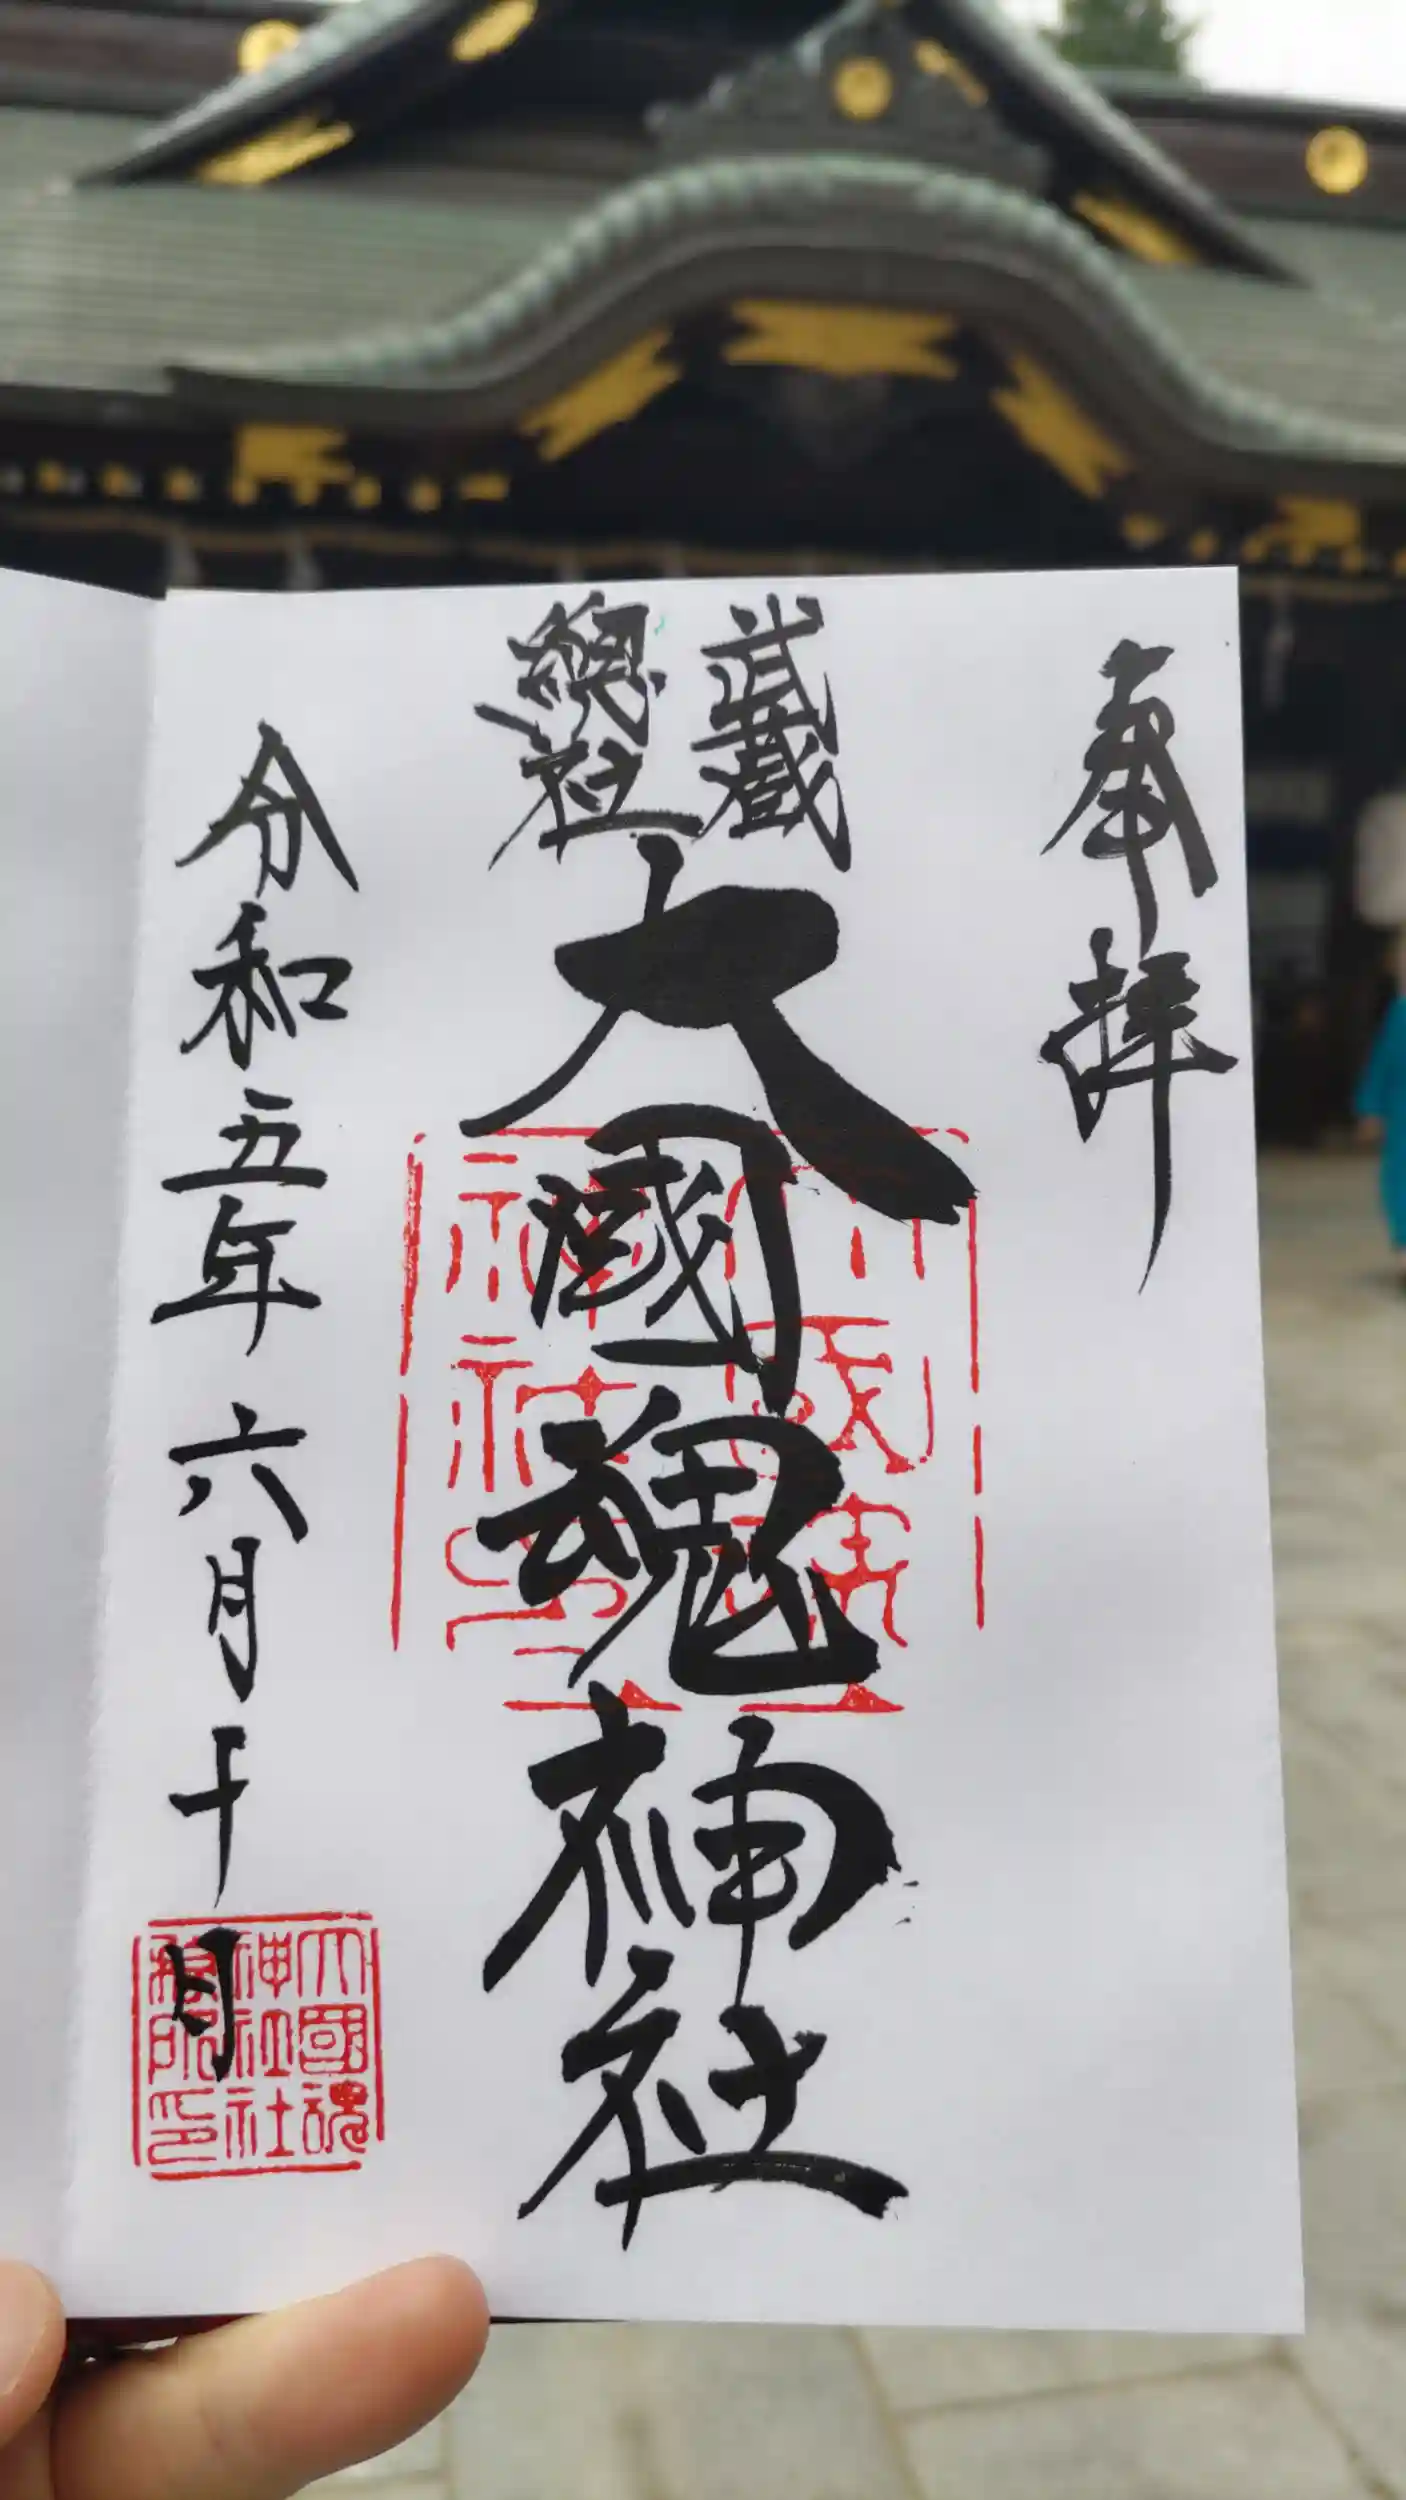 奉拝
武蔵
總社
大國魂神社
令和五年六月十日
大國魂
神社社
務所印